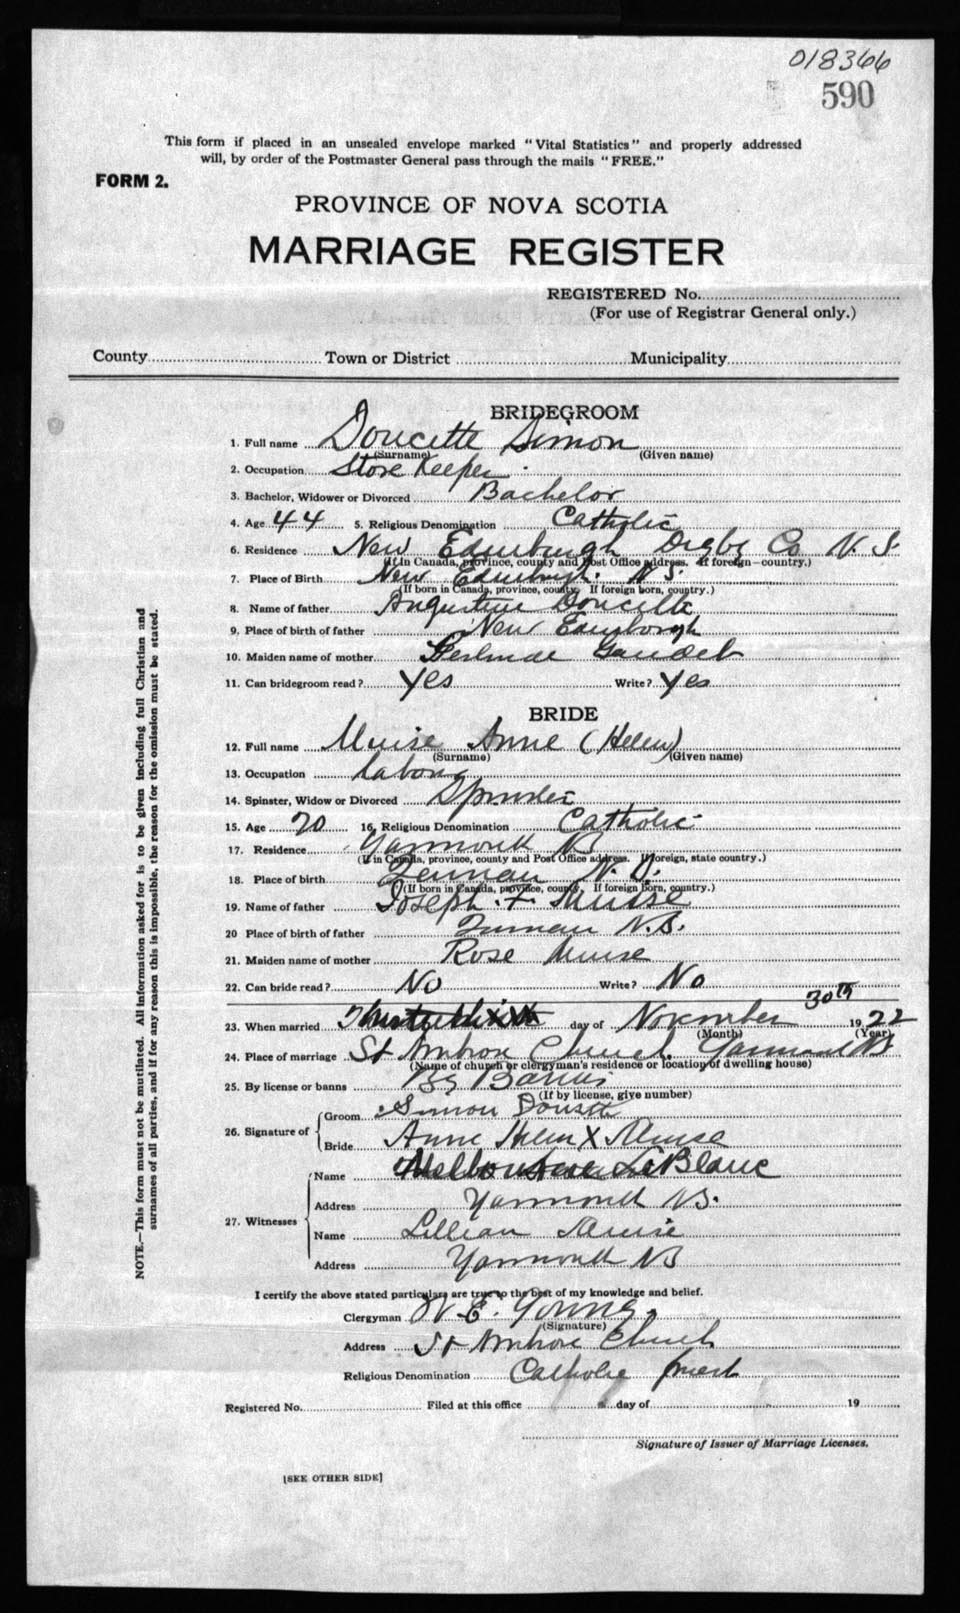 018366
590
This form if placed in an unsealed envelope marked "Vital Statistics" and properly addressed
will, by order of the Postmaster General pass through the mails "FREE."
FORM 2.
PROVINCE OF NOVA SCOTIA
MARRIAGE REGISTER
REGISTERED No.
(For use of Registrar General only.)
County Town or District Municipality
BRIDEGROOM
1. Full name Doucette Simon
(Surname) (Given name)
2. Occupation Store Keeper
3. Bachelor, Widower or Divorced Bachelor
4. Age 44 5. Religious Denomination Catholic
6. Residence New Edinburgh Digby Co N.S.
(If in Canada, province, county and Post Office address. If foreign—country.)
7. Place of Birth New Edinburgh. N.S.
(If born in Canada, province, county. If foreign born, country.)
8. Name of father Augustine Doucette
9. Place of birth of father New Edinborgh
10. Maiden name of mother Gertrude Gaudet
11. Can bridegroom read? Yes Write? Yes
BRIDE
12. Full name Muise Anne (Helen)
(Surname) (Given name)
13. Occupation
14. Spinster, Widow or Divorced Spinster
15. Age 20 16. Religious Denomination Catholic
17. Residence Yarmouth NS
(If in Canada, province, county and Post Office address. If foreign, state country.)
18. Place of birth N.S.
(If born in Canada, province, county. If foreign born, country.)
19. Name of father Joseph F. Muise
20 Place of birth of father N.S.
21. Maiden name of mother Rose Muise
22. Can bride read? No Write? No
30th
23. When married day of November 1922
(Month) (Year)
24. Place of marriage St Ambrose Church. Yarmouth NS
(Name of church or clergyman's residence or location of dwelling house)
25. By license or banns By Banns
(If by license, give number)
26. Signature of Groom Simon Doucette
Bride Anne Helen X Muise
27. Witnesses
Name Melbourne LeBlanc
Address Yarmouth NS.
Name Lillian Muise
Address Yarmouth NS
I certify the above stated particulars are true to the best of my knowledge and belief.
Clergyman W. E. Young
(Signature)
Address St Ambrose Church
Religious Denomination Catholic priest
Registered No. Filed at this office day of 19
Signature of Issuer of Marriage Licenses.
[SEE OTHER SIDE]
NOTE.—This form must not be mutilated. All information asked for is to be given including full Christian and
surnames of all parties, and if for any reason this is impossible, the reason for the omission must be stated.